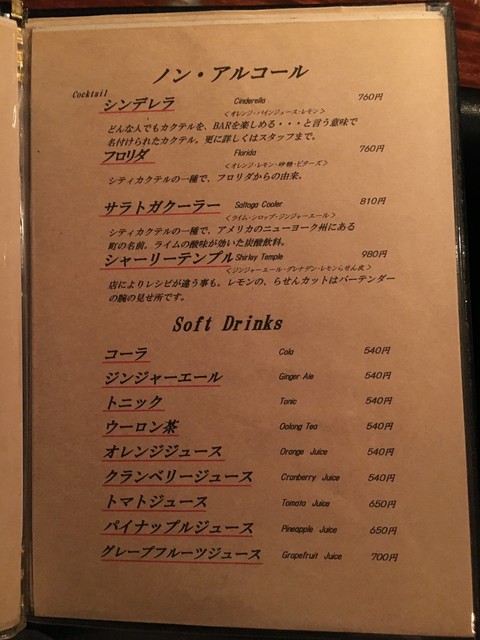 ノン・アルコール
Cocktail
シンデレラ Cinderella 760円
<オレンジ・パインジュース・レモン>
どんな人でもカクテルを、BARを楽しめる・・・と言う意味で
名付けられたカクテル。更に詳しくはスタッフまで。
フロリダ Florida 760円
<オレンジ・レモン・砂糖・ビターズ>
シティカクテルの一種で、フロリダからの由来。
サラトガクーラー Saltoga Cooler 810円
<ライム・シロップ・ジンジャーエール>
シティカクテルの一種で、アメリカのニューヨーク州にある
町の名前。ライムの酸味が効いた炭酸飲料。
シャーリーテンプル Shirley Temple 980円
<ジンジャーエール・グレナデン・レモンらせん皮>
店によりレシピが違う事も。レモンの、らせんカットはバーテンダー
の腕の見せ所です。
Soft Drinks
コーラ Cola 540円
ジンジャーエール Ginger Ale 540円
トニック Tonic 540円
ウーロン茶 Oolong Tea 540円
オレンジジュース Orange Juice 540円
クランベリージュース Cranberry Juice 540円
トマトジュース Tomato Juice 650円
パイナップルジュース Pineapple Juice 650円
グレープフルーツジュース Grapefruit Juice 700円